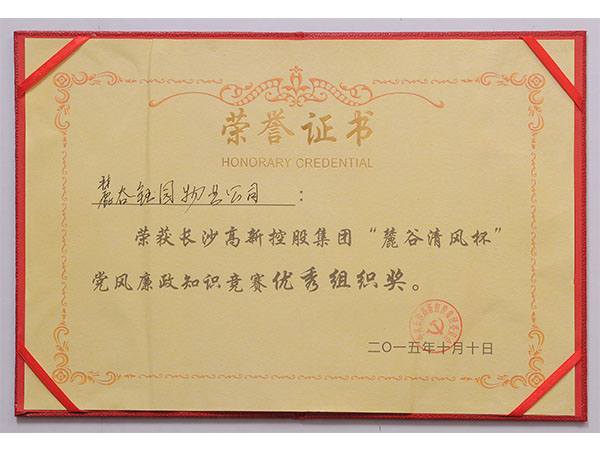 荣誉证书
HONORARY CREDENTIAL
麓谷钰园物业公司：
荣获长沙高新控股集团“麓谷清风杯”
党风廉政知识竞赛优秀组织奖。
二〇一五年十月十日